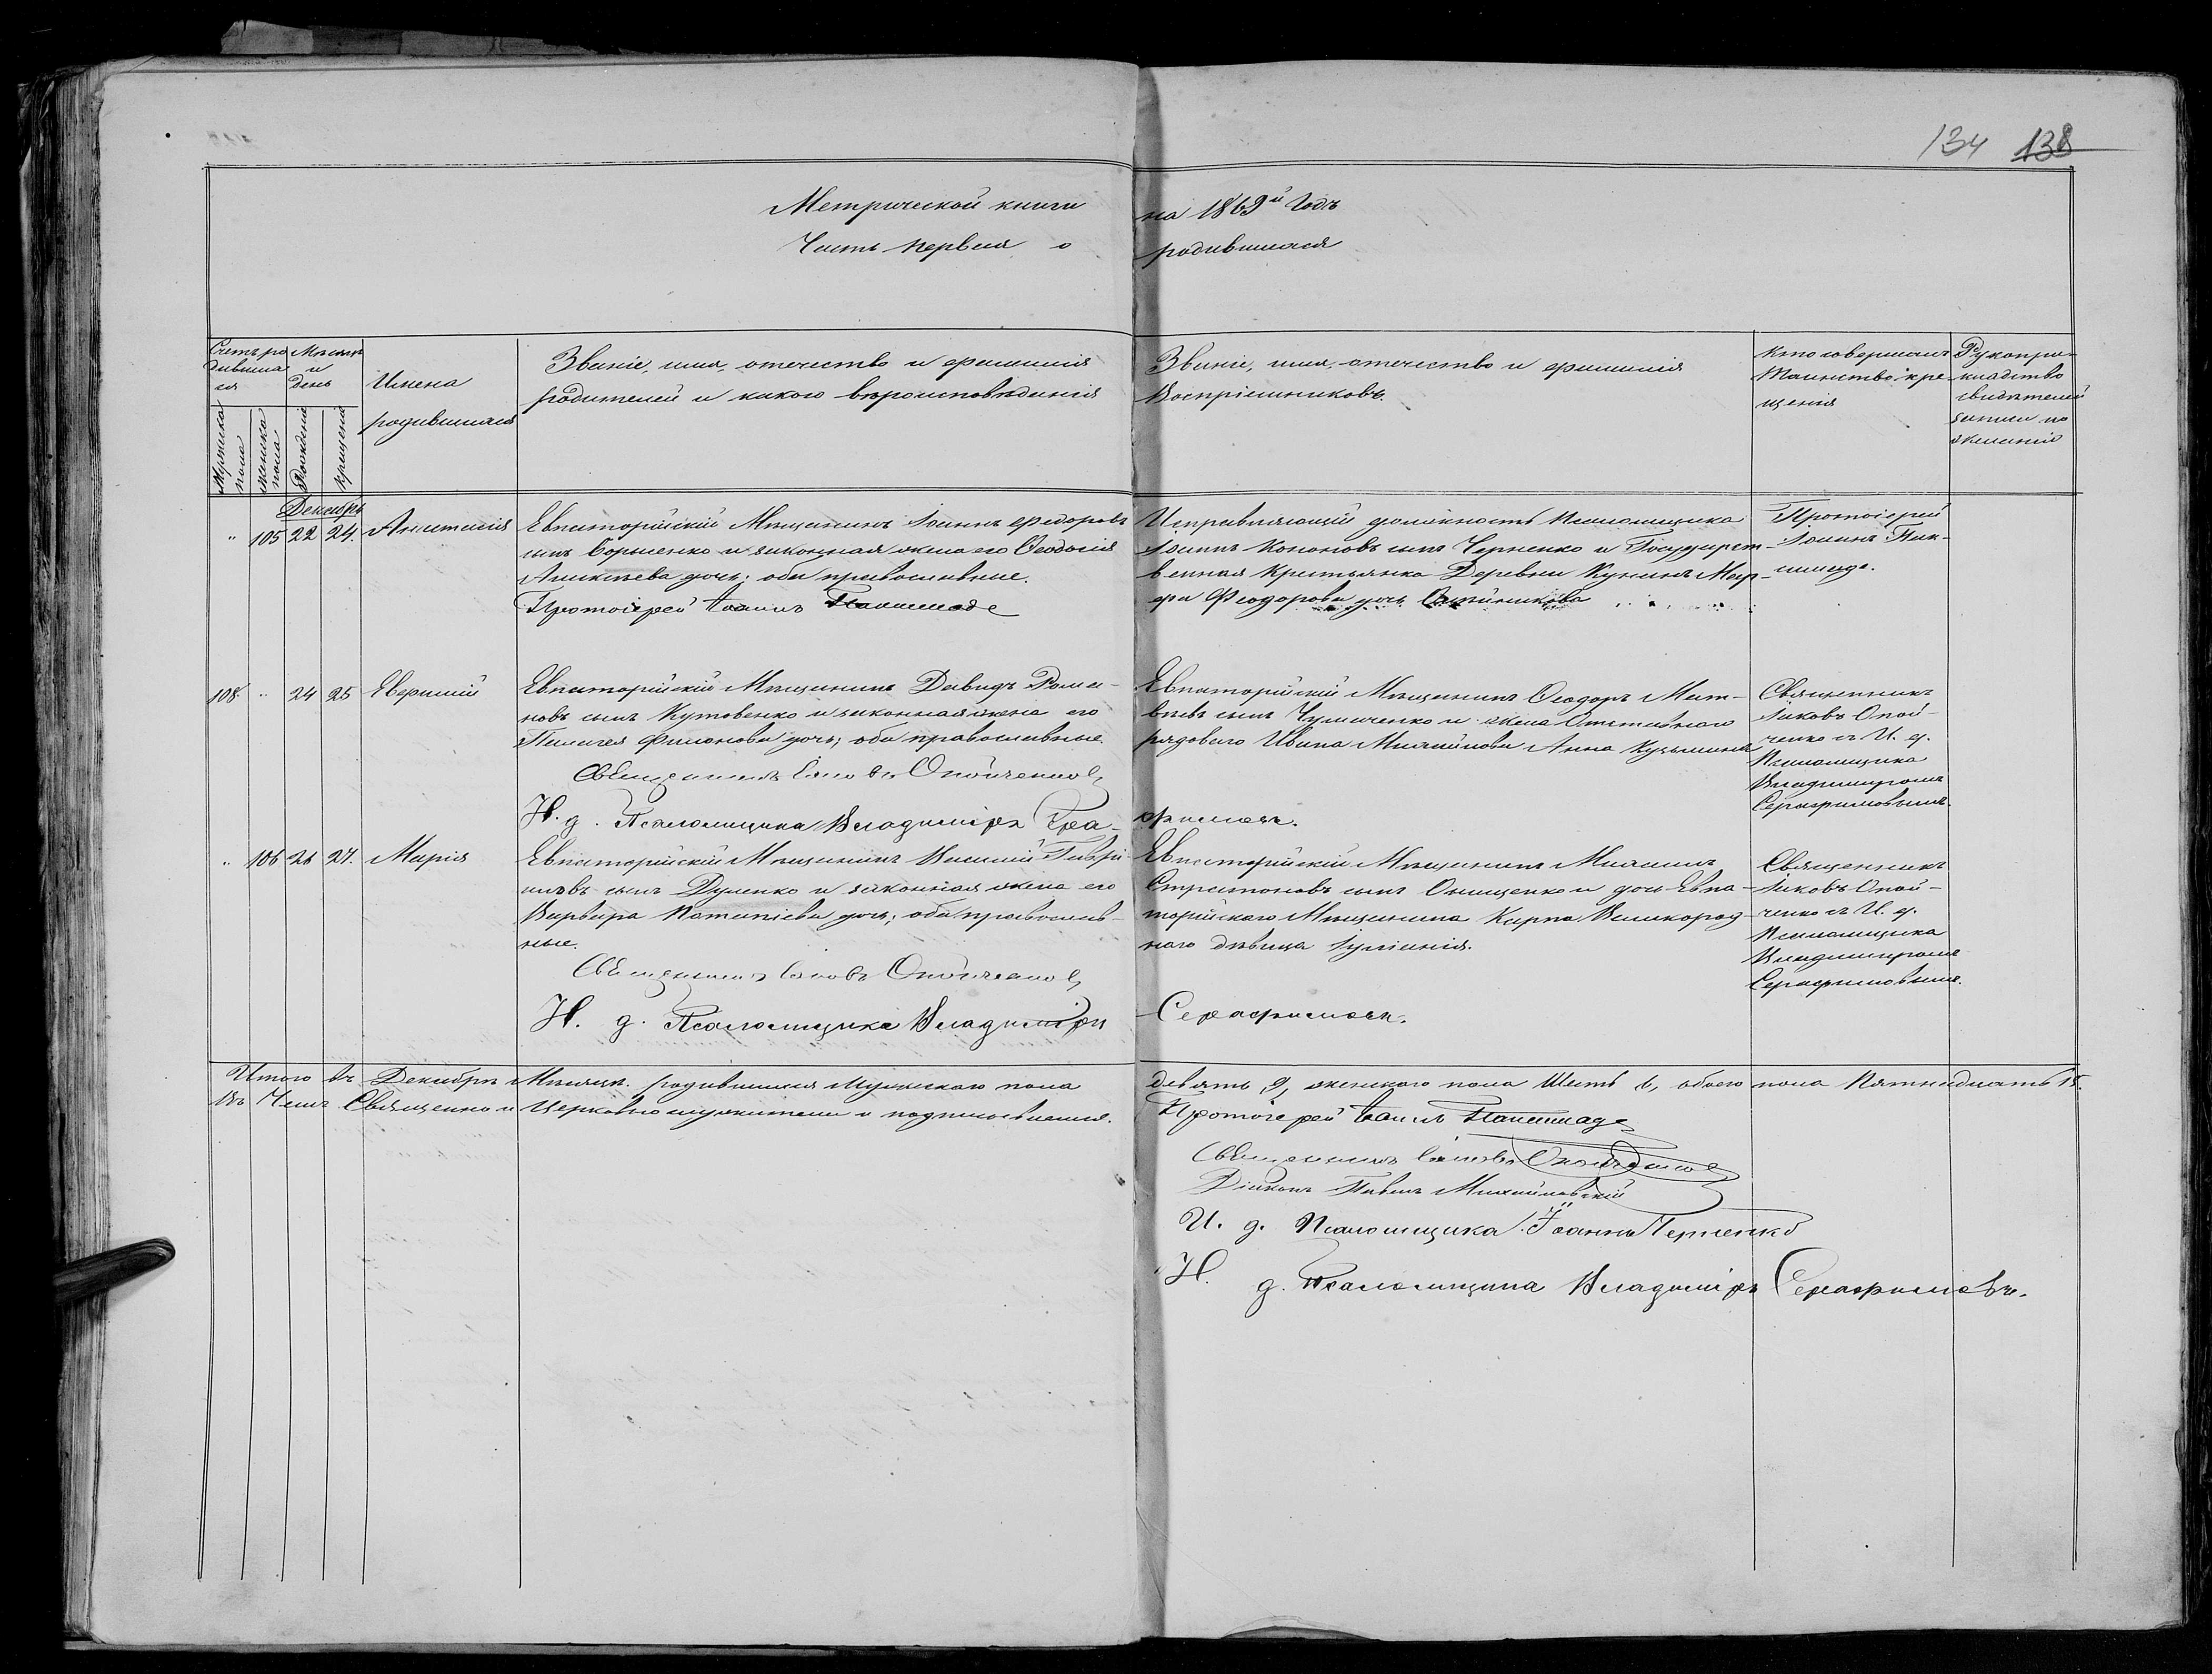 134 138
Метрической книги на 1869й Годъ
Часть первая о родившихся
Счетъ родившихся
Мѣсяцъ и День
Мужеска пола
женска пола
Рожденія
крещенія
Имена родившихся
Званіе, имя, отечество и фамилія
родителей и какого вѣроисповѣданія
Званіе, имя, отечество и фамилія
Воспріемниковъ.
Кто совершалъ
Таинство кре-
щенія
Рукопри-
кладство
свидѣтелей
записи по
желанію
Декабрь
" 105 22 24. Анастасія
Евпаторійскій Мѣщанинъ Іоаннъ Федоровъ
сынъ Борысенко и законная жена его Ѳеодосія
Алексѣева дочь; оба православные.
Протоіерей Іоаннъ
Исправляющій должность Псаломщика
Іоаннъ Кононовъ сынъ Черненко и Государст-
венная Крестьянка Деревни Мар-
фа Феодорова дочь Олейникова
Протоіерей
Іоаннъ
108. " 24 25 Евфимій
Евпаторійскій Мѣщанинъ Давидъ Рома-
новъ сынъ Кутовенко и законная жена его
Пелагея Филонова дочь; оба православные
Священникъ Іаковъ Опойченко
И. д. Псаломщика Владиміръ Сера-
фимовъ.
Евпаторійскій Мѣщанинъ Ѳеодоръ Мат-
вѣевъ сынъ Чумаченко и жена Отставнаго
рядоваго Ивана Михайлова Анна Кузьмина
Священникъ
Іаковъ Опой-
ченко съ И. д.
Псаломщика
Владиміромъ
Серафимовымъ.
" 106 26 27. Марія
Евпаторійскій Мѣщанинъ Василій Гаврі-
иловъ сынъ Дуленко и законная жена его
Варвара Потапіева дочь; оба православ-
ные.
Священникъ Іаковъ Опойченко
И. д. Псаломщика Владиміръ Серафимовъ.
Евпаторійскій Мѣщанинъ Михаилъ
Стратоновъ сынъ Онищенко и дочь Евпа-
торійскаго Мѣщанина Карпа Великород-
наго дѣвица Іуліанія.
Священникъ
Іаковъ Опой-
ченко съ И. д.
Псаломщика
Владиміромъ
Серафимовымъ.
Итого въ Декабрѣ Мѣсяцѣ родившихся Мужескаго пола девять 9, женскаго пола Шесть 6, обоего пола Пятнадцать 15.
Въ Чемъ Священно и Церковно служители и подписываемся.
Протоіерей Іоаннъ
Священникъ Іаковъ Опойченко
Діаконъ Павелъ Михайловскій
И. д. Псаломщика Іоаннъ Черненко
И. д. Псаломщика Владиміръ Серафимовъ.